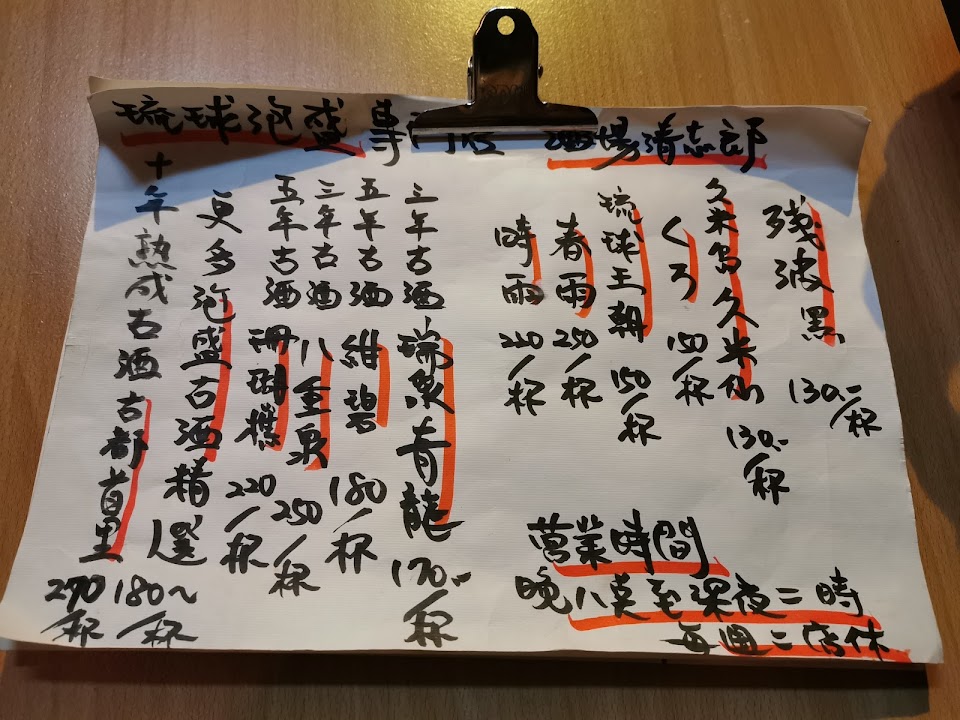 琉球泡盛專 酒場清志郎
残波黑 130.-/杯
久米島久米仙 130.-/杯
くろ 150/杯
琉球王朝 150/杯
春雨 250/杯
時雨 220/杯
三年古酒 瑞泉青龍 170.-/杯
五年古酒 紺碧 180/杯
三年古酒 八重泉 250/杯
五年古酒 珊瑚礁 220/杯
更多泡盛古酒精選 180~/杯
十年熟成古酒 古都首里 270/杯
營業時間
晚八莫至深夜二時
每週二店休